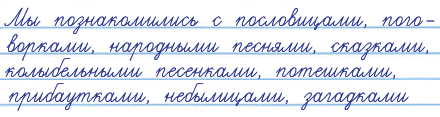 Мы познакомились с пословицами, пого-
ворками, народными песнями, сказками,
колыбельными песенками, потешками,
прибаутками, небылицами, загадками